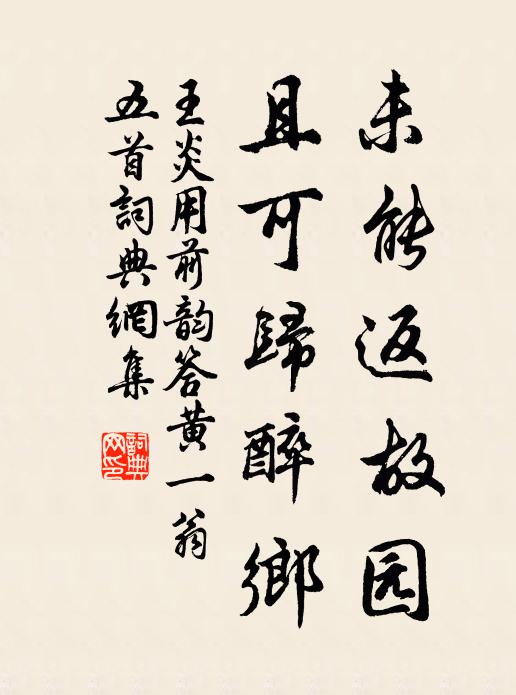 未能返故园
且可歸醉鄉
王炎用前韵答黄一翁
五首詞典網集
詞典網印